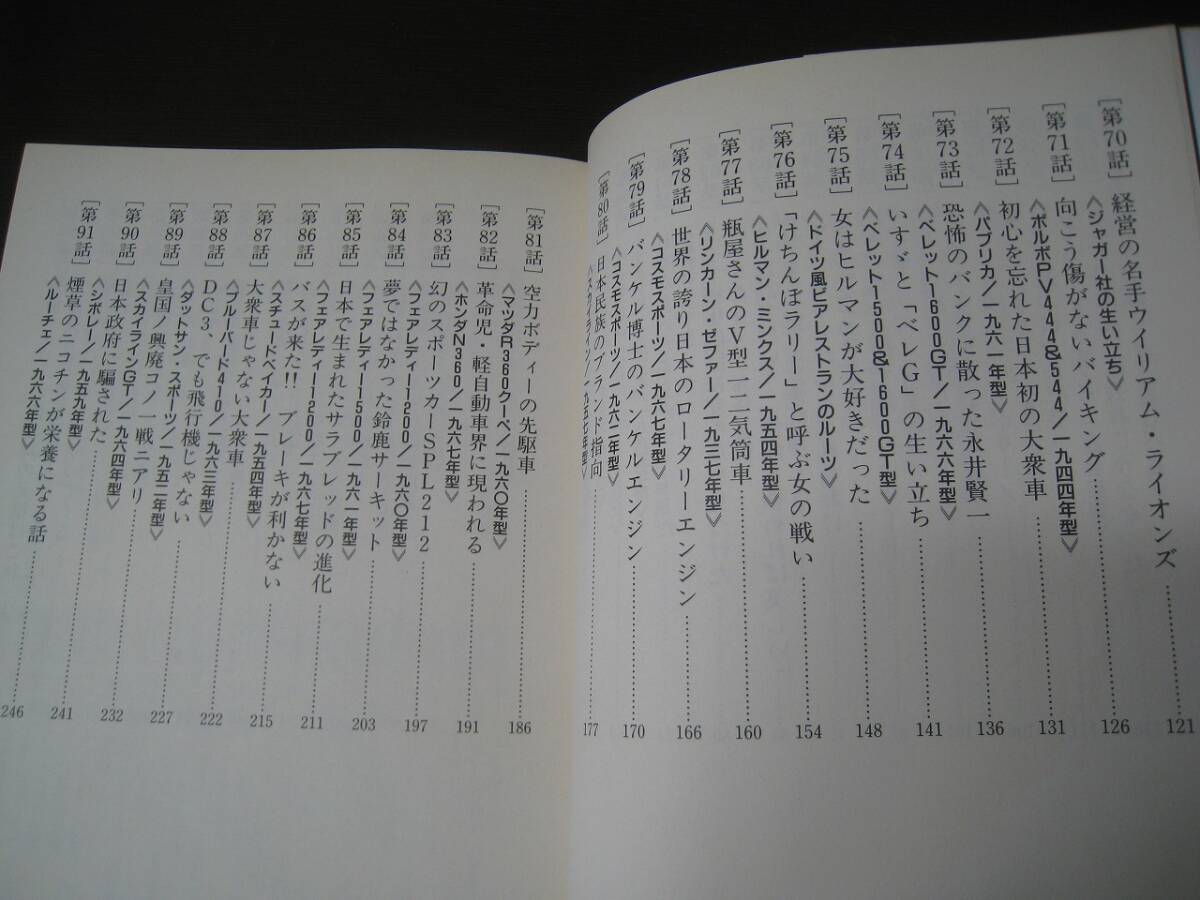 [第70話] 経営の名手ウイリアム・ライオンズ……121
《ジャガー社の生い立ち》
[第71話] 向こう傷がないバイキング……126
《ボルボPV444&544/一九四四年型》
[第72話] 初心を忘れた日本初の大衆車……131
《パブリカ/一九六一年型》
[第73話] 恐怖のバンクに散った永井賢一……136
《ベレット1600GT/一九六六年型》
[第74話] いすゞと「ベレG」の生い立ち……141
《ベレット1500&1600GT型》
[第75話] 女はヒルマンが大好きだった……148
《ドイツ風ビアレストランのルーツ》
[第76話] 「けちんぼラリー」と呼ぶ女の戦い……154
《ヒルマン・ミンクス/一九五四年型》
[第77話] 瓶屋さんのV型一二気筒車……160
《リンカーン・ゼファー/一九三七年型》
[第78話] 世界の誇り日本のロータリーエンジン……166
《コスモスポーツ/一九六七年型》
[第79話] バンケル博士のバンケルエンジン……170
《コスモスポーツ/一九六二年型》
[第80話] 日本民族のブランド指向……177
《スカイライン/一九五七年型》
[第81話] 空力ボディーの先駆車……186
《マツダR360クーペ/一九六〇年型》
[第82話] 革命児・軽自動車界に現われる……191
《ホンダN360/一九六七年型》
[第83話] 幻のスポーツカーSPL212……197
《フェアレディー1200/一九六〇年型》
[第84話] 夢ではなかった鈴鹿サーキット……203
《フェアレディー1500/一九六一年型》
[第85話] 日本で生まれたサラブレッドの進化……211
《フェアレディー1200/一九六七年型》
[第86話] バスが来た!! ブレーキが利かない……215
《スチュードベイカー/一九五四年型》
[第87話] 大衆車じゃない大衆車……222
《ブルーバード410/一九六三年型》
[第88話] DC3、でも飛行機じゃない……227
《ダットサン・スポーツ/一九五二年型》
[第89話] 皇国ノ興廃コノ一戦ニアリ……232
《スカイラインGT/一九六四年型》
[第90話] 日本政府に騙された……241
《シボレー/一九五九年型》
[第91話] 煙草のニコチンが栄養になる話……246
《ルーチェ/一九六六年型》